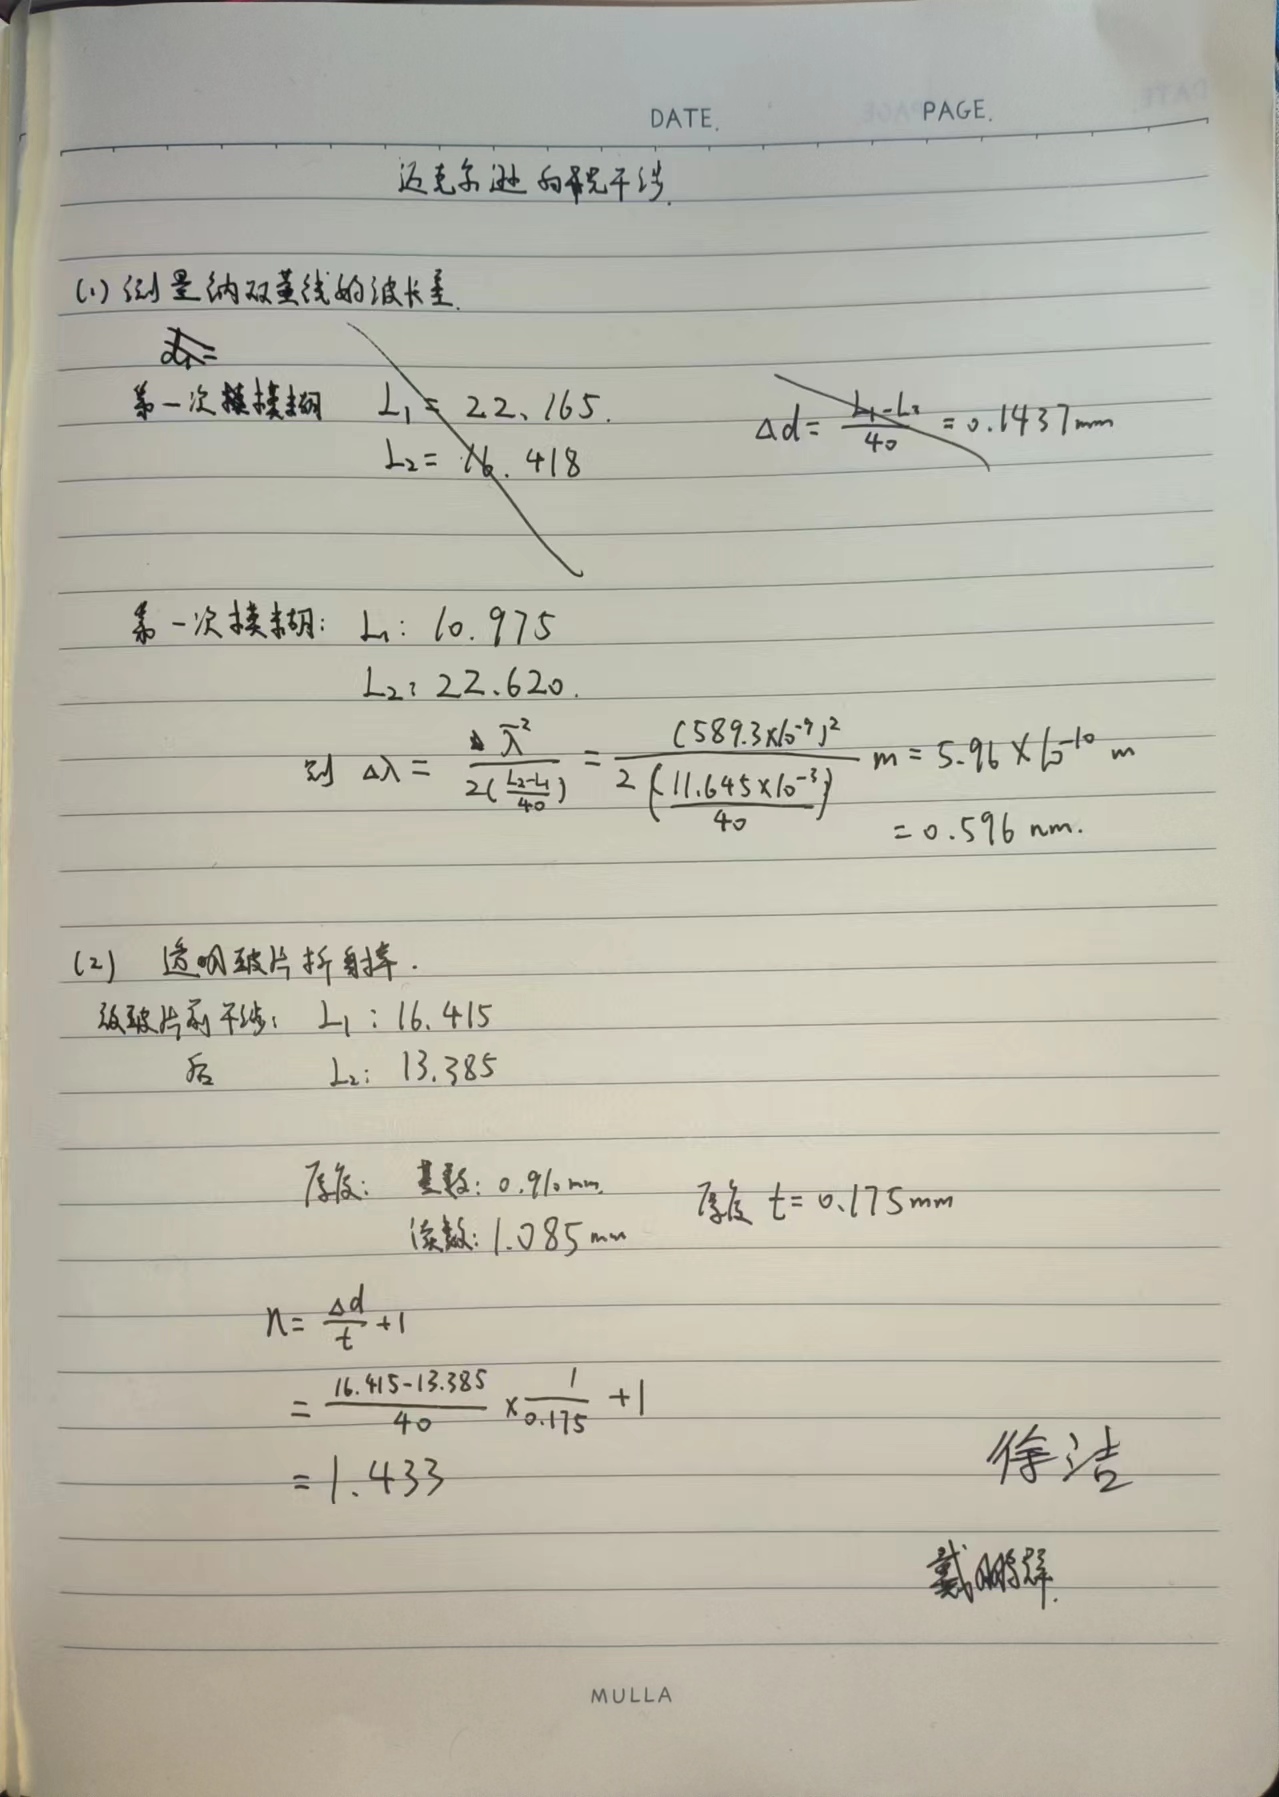 DATE. PAGE.
迈克尔逊白光干涉.
(1) 测量纳双黄线的波长差.
d₁=
第一次模模糊 L₁ = 22.165.
L₂ = 16.418
Δd = (L₁-L₂)/40 = 0.1437mm
第一次模糊: L₁: 10.975
L₂: 22.620.
则 Δλ = λ̄²/(2((L₂-L₁)/40)) = (589.3×10⁻⁹)²/(2(11.645×10⁻³/40)) m = 5.96×10⁻¹⁰ m
= 0.596 nm.
(2) 透明玻片折射率.
放玻片前干涉: L₁: 16.415
后 L₂: 13.385
厚度: 基数: 0.910mm. 厚度 t = 0.175mm
读数: 1.085mm
n = Δd/t +1
= (16.415-13.385)/40 × 1/0.175 +1
= 1.433
徐洁
戴
MULLA